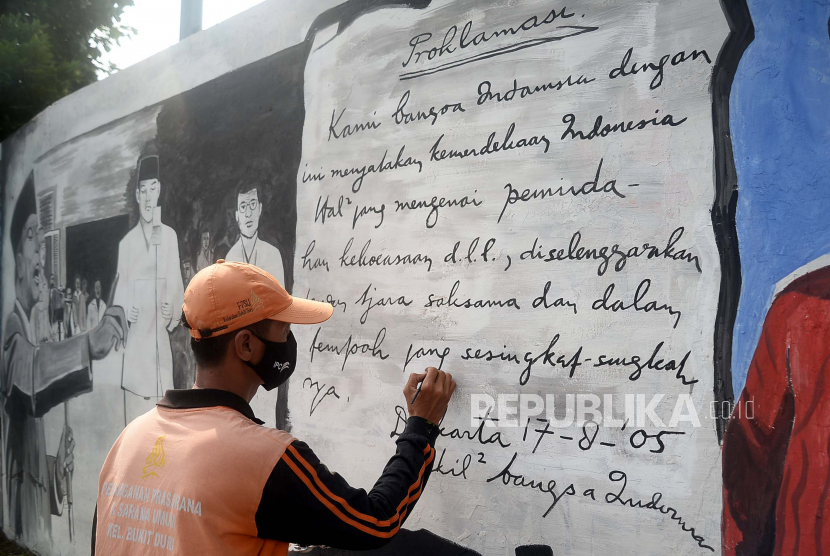 Proklamasi.
Kami bangsa Indonesia dengan
ini menyatakan kemerdekaan Indonesia
Hal² jang mengenai peminda-
han kekoeasaan d.l.l., diselenggarakan
tjara saksama dan dalam
tempoh jang sesingkat-singkat
nya.
17-8-'05
bangsa Indonesia
REPUBLIKA.co.id
PRASARANA
SARANA UMUM
KEL. BUKIT DURI